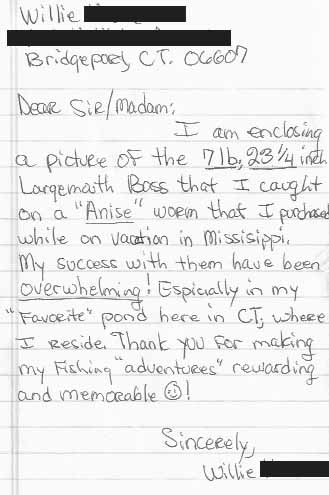 Willie
Bridgeport, CT. 06607
Dear Sir/Madam:
I am enclosing
a picture of the 7 lb, 23 1/4 inch
Largemaith Boss that I caught
on a "Anise" worm that I purchased
while on vacation in Missisippi.
My success with them have been
overwhelming! Espicially in my
"Favorite" pond here in CT, where
I reside. Thank you for making
my Fishing "adventures" rewarding
and memorable ☺!
Sincerely,
Willie